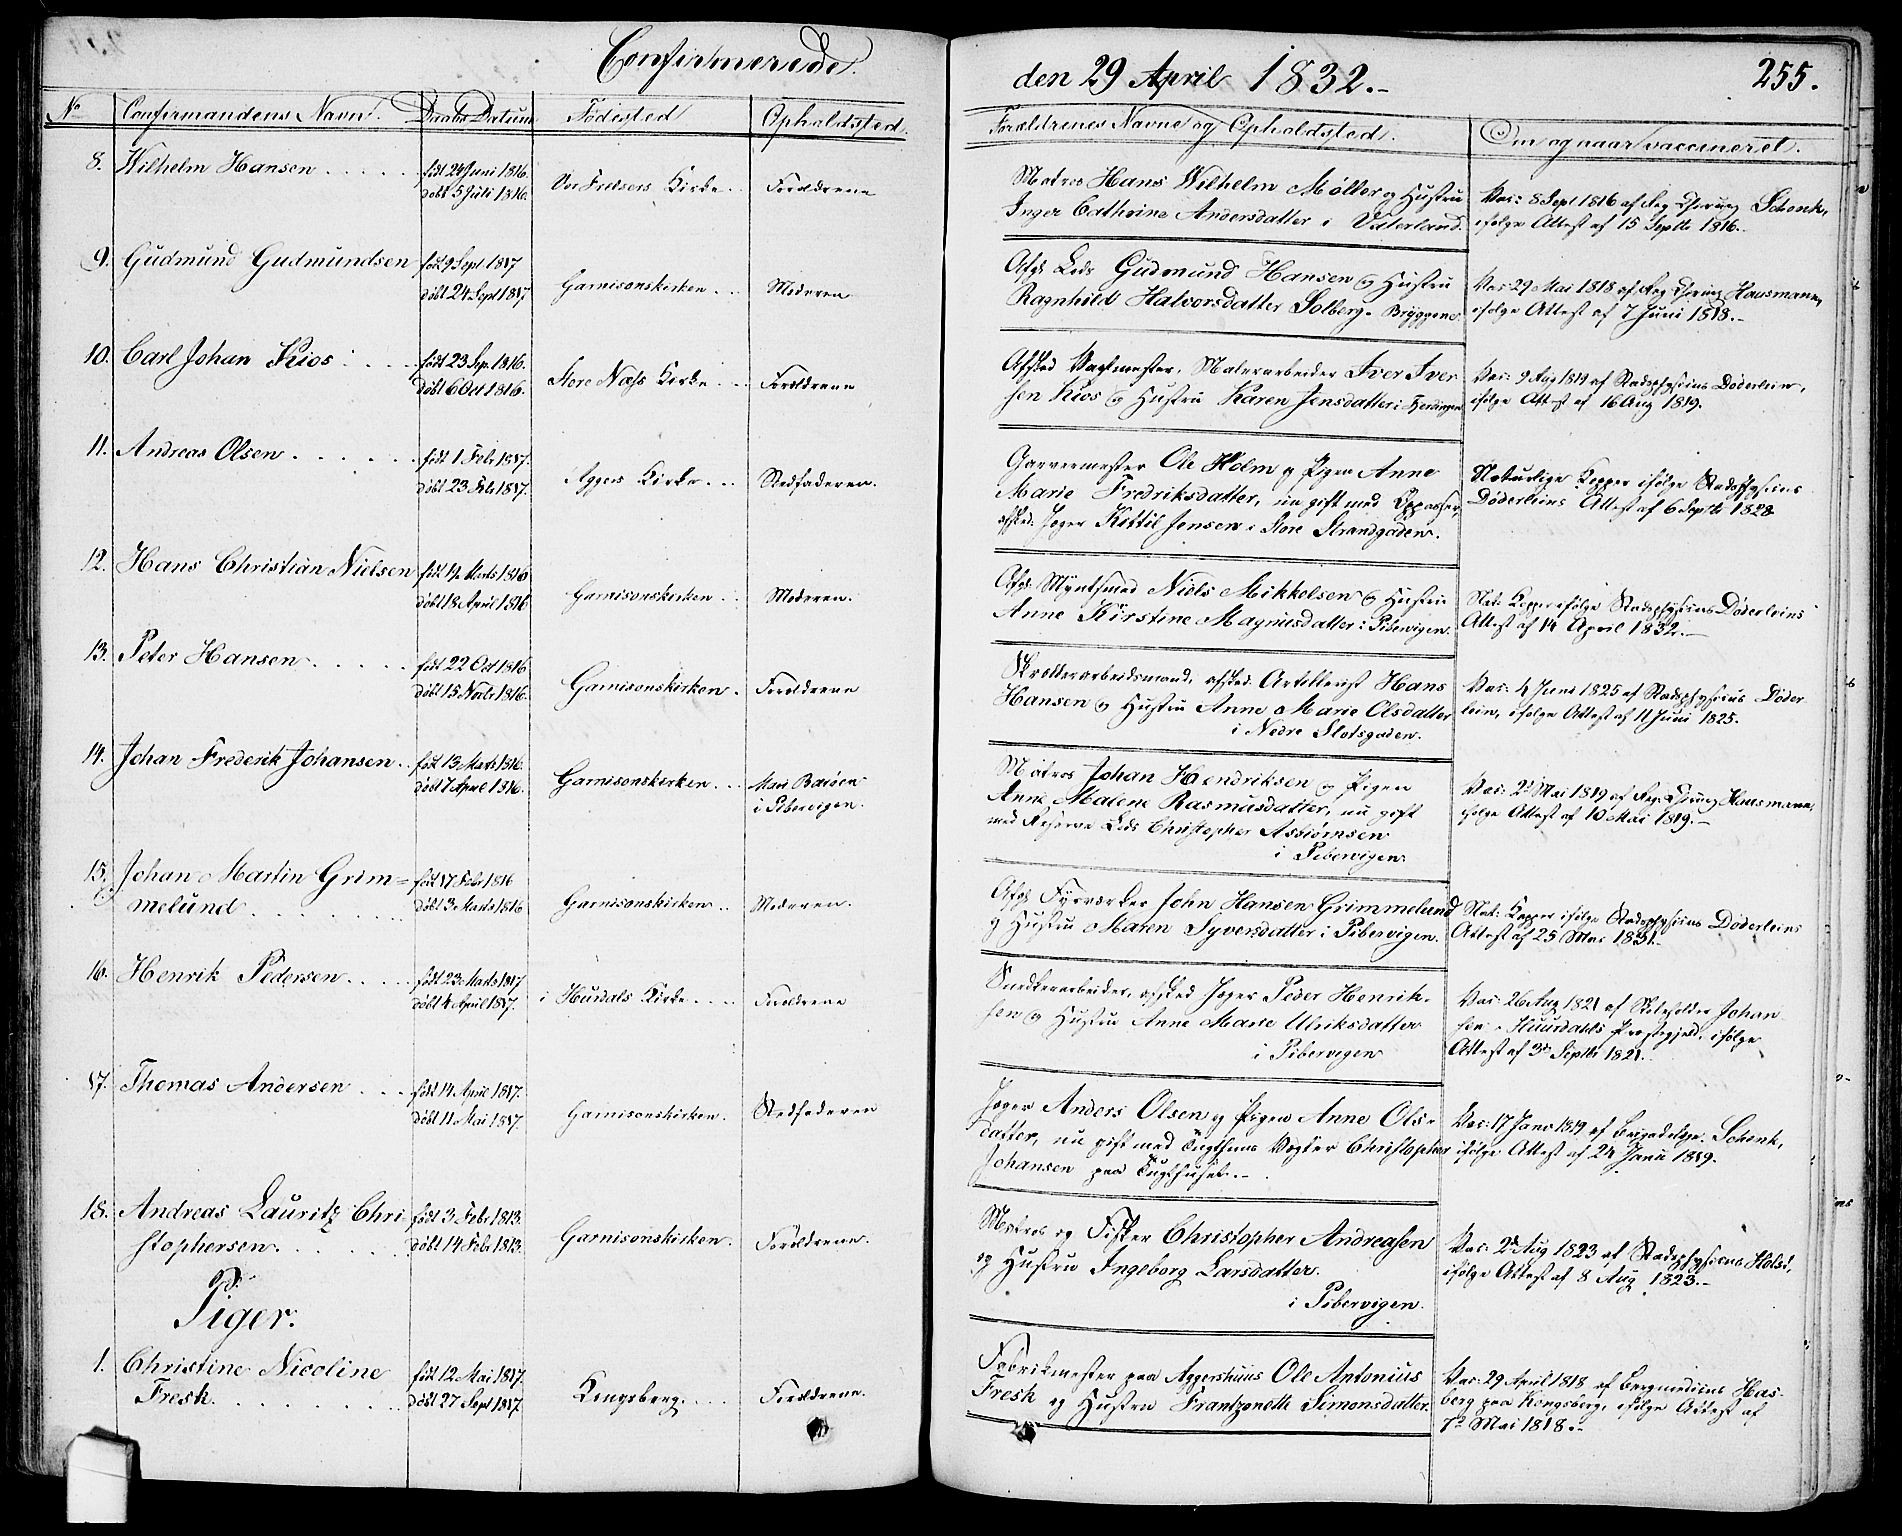 Confirmerede
den 29 April 1832.-
255.
No
Confirmandens Navn.
Daabs Datum
Fødested
Opholdssted
Forældrenes Navne og Opholdssted.
Om og naar vaccineret.
8. Wilhelm Hansen
født 24 Juni 1816.
døbt 5 Juli 1816.
Vor Frelsers Kirke
Forældrene
Matros Hans Wilhelm Møller og Hustru
Inger Cathrine Andersdatter i Vaterland.
Vac: 8 Sept 1816 af Reg Chirurg Schenk,
ifølge Attest af 15 Septb 1816.
9. Gudmund Gudmundsen
født 9 Sept 1817
døbt 24 Sept 1817
Garnisonskirken
Moderen
Afg. Leds Gudmund Hansen og Hustru
Ragnhild Halvorsdatter Solberg- Bryggene
Vac: 29 Mai 1818 af Reg Chirurg Hausmann,
ifølge Attest af 7 Juni 1818.-
10. Carl Johan Kios
født 23 Sep. 1816.
døbt 6 Oct 1816.
Store Næss Kirke
Forældrene
Afsked Vagtmester, Malerarbeider Iver Iver
sen Kios og Hustru Karen Jensdatter i Fjerdingen
Vac: 9 Aug 1819 af Stadsphysicus Døderlein,
ifølge Att af 16 Aug 1819.
11. Andreas Olsen
født 1 Febr 1817.
døbt 23 Febr 1817.
Aggers Kirke
Stedfaderen.
Garvermester Ole Holm og Pigen Anne
Marie Fredriksdatter, nu gift med Oppasser,
afsked: Jæger Kittil Jensen i Store Strandgaden.
Naturlige Kopper ifølge Stadsphysicus
Døderleins Attest af 6 Septb 1828
12. Hans Christian Nielsen
født 14 Marts 1816
døbt 18 April 1816
Garnisonskirken
Moderen.
Afg: Myntsmed Niels Mikkelsen og Hustru
Anne Kirstine Magnusdatter i Pibervigen.
Nat: Kopper ifølge Stadsphysicus Døderleins
Attest af 14 April 1832.-
13. Peter Hansen
født 22 Oct 1816
døbt 15 Novbr 1816.
Garnisonskirken.
Forældrene
Skrædderarbeidsmand, afsked: Artillerist Hans
Hansen og Hustru Anne Marie Olsdatter
i Nedre Slotsgaden.
Vac: 4 Juni 1825 af Stadsphysicus Døder
lein, ifølge Attest af 11 Juni 1825.
14. Johan Frederik Johansen
født 13 Marts 1816.
døbt 7 April 1816.
Garnisonskirken
i Pibervigen.
Matros Johan Hendriksen og Pigen
Anne Malene Rasmusdatter, nu gift
med Reserve Leds Christopher Assiørnsen
i Pibervigen.
Vac: 2 Mai 1819 af Reg. Chirurg Hausmann,
ifølge Attest af 10 Mai 1819.-
15. Johan Martin Grim=
melund
født 17 Febr 1816
døbt 3 Marts 1816
Garnisonskirken
Moderen.
Afg: Fyrværker John Hansen Grimmelund
og Hustru Maren Syversdatter i Pibervigen.
Nat: Kopper ifølge Stadsphysicus Døderleins
Attest af 25 Mai 1831.-
16. Henrik Pedersen
født 23 Marts 1817
døbt 4 April 1817.
i Hurdals Kirke
Forældrene
Snedkerarbeider, afsked Jæger Peder Henrik-
sen og Hustru Anne Marie Ulriksdatter
i Pibervigen
Vac: 26 Aug 1821 af Skoleholder Johan
sen i Huurdahls Præstegjeld, ifølge
Attest af 3 Septbr 1821.
17. Thomas Andersen
født 14 April 1817.
døbt 11 Mai 1817.
Garnisonskirken.
Stedfaderen
Jæger Anders Olsen og Pigen Anne Ols-
datter, nu gift med Tugthuus Vægter Christopher
Johansen paa Tugthuset.-
Vac: 17 Janv 1819 af Brigadelæge Schenk,
ifølge Attest af 24 Janv 1819.
18. Andreas Lauritz Chri-
stophersen.
født 3 Febr 1813.
døbt 14 Febr 1813.
Garnisonskirken.
Forældrene.
Matros og Fisker Christopher Andreasen
og Hustru Ingeborg Larsdatter.
i Pibervigen.
Vac: 2 Aug 1823 af Stadsphysicus Holst,
ifølge Attest af 8 Aug 1823.-
Piger.
1. Christine Nicoline
Fresk.
født 12 Mai 1817.
døbt 27 Sept 1817.
Kongsberg.
Forældrene.
Fabrikmester paa Aggershuus Ole Antonius
Fresk og Hustru Frantzonette Simonsdatter.
Vac: 29 April 1818 af Bergmedicus Has-
berg paa Kongsberg, ifølge Attest af
7 Mai 1818.-